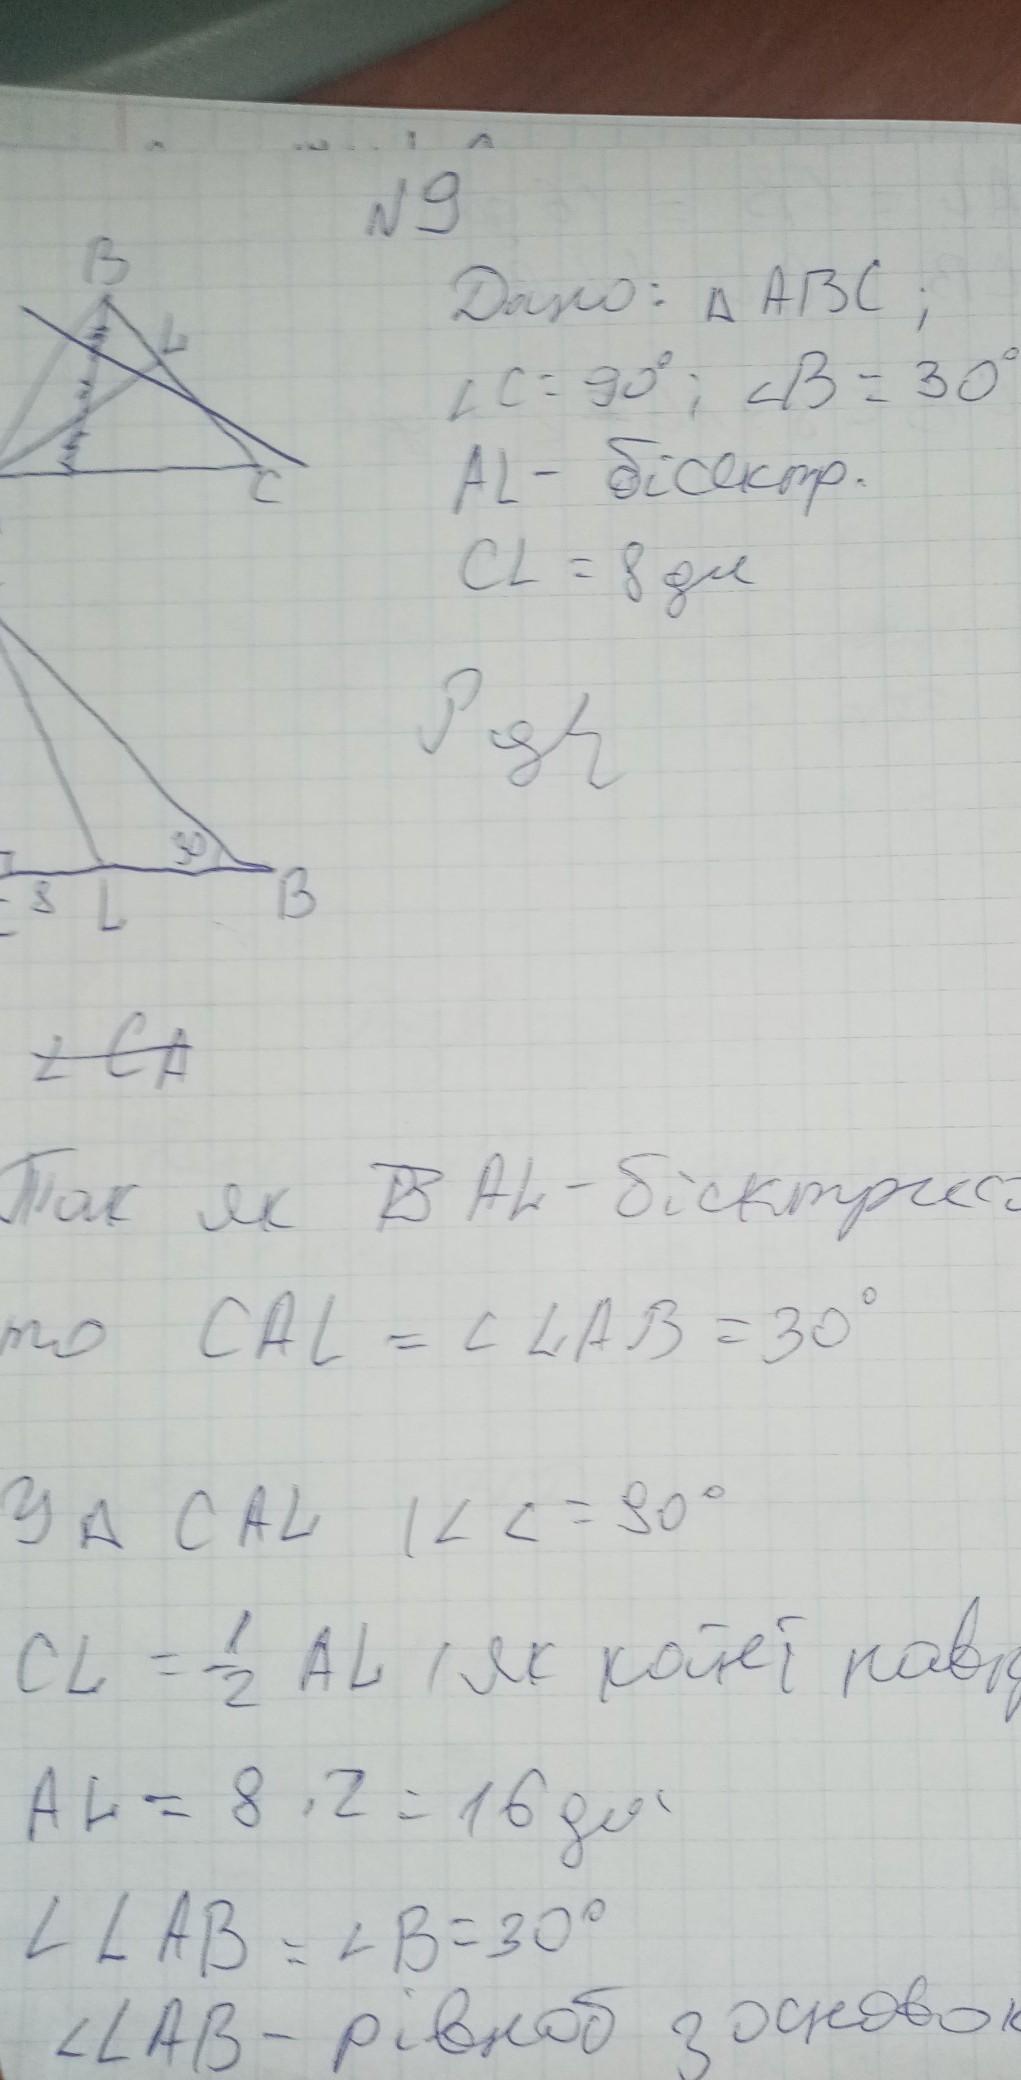 №9
B
L
C
Дано: △ABC;
∠C=90°; ∠B=30°
AL- бісектр.
CL = 8 дм
30
8 L B
∠ CA
Так як B AL-біс
то CAL = ∠LAB = 30°
У △ CAL, ∠C=90°
CL = 1/2 AL, як катет
AL = 8 · 2 = 16 дм
∠LAB = ∠B=30°
∠LAB- рівноб з основою